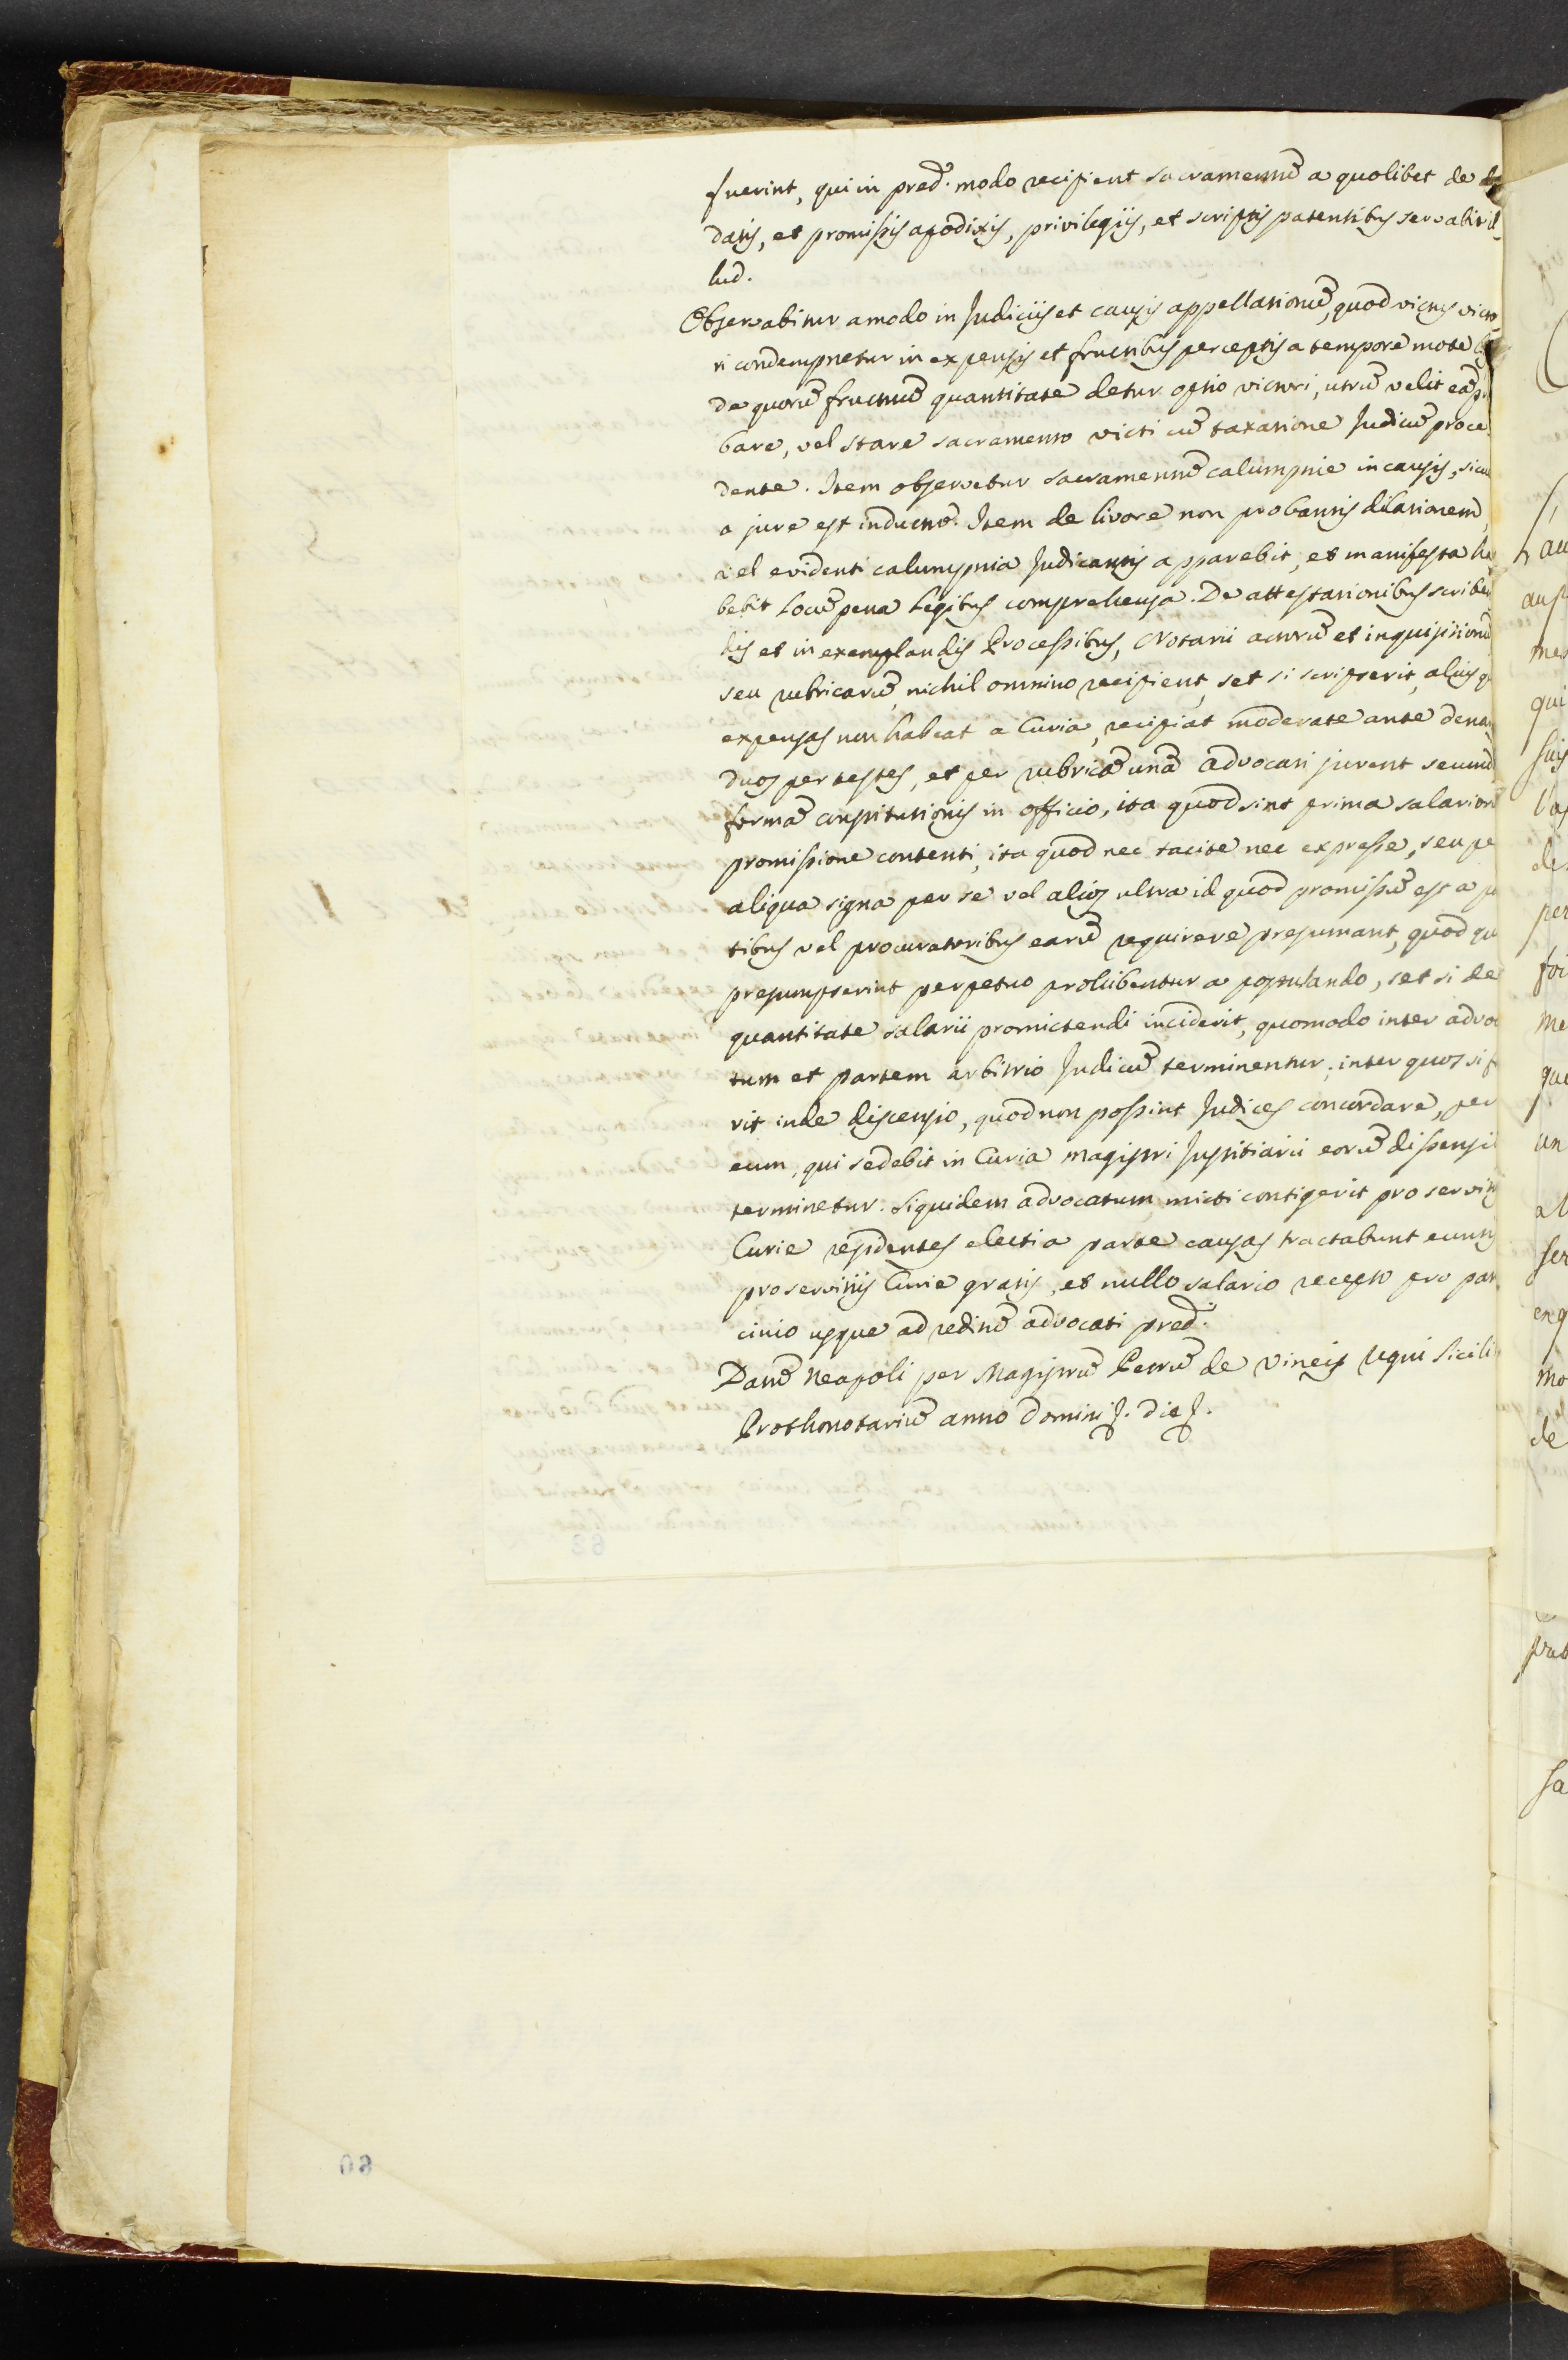 fuerint, qui in pred. modo recipient sacramentũ a quolibet de
datis, et promissis apodixis, privilegiis, et scriptis patentibus servabit il-
lud.
Observabitur amodo in Judiciis et causis appellationũ, quod victus victo
ri condempnetur in expensis et fructibus perceptis a tempore mote
de quorũ fructuũ quantitate detur optio victori, utrũ velit eã p
bare, vel stare sacramento victi cũ taxatione Judicũ proce
dente. Item observetur sacramentũ calumpnie in causis, sicu
a jure est inductũ. Item de livore non probantis dilationem,
vel evidenti calumpnia Judicantis apparebit, et manifesta ha
bebit locũ pena legibus comprehensa. De attestationibus scriben
dis et in exemplandis Processibus, Notarii actorũ et inquisitionũ
seu rubricarũ, nichil omnino recipient, set si scripserit, alius q
expensas non habeat a Curia, recipiat moderate ante dena
duos per testes, et per rubricã unã Advocati jurent secund
formã constitutionis in officio, ita quod sint prima salariorũ
promissione contenti, ita quod nec tacite nec expresse, seu pe
aliqua signa per se vel alios ultra id quod promissũ est a p
tibus vel procuratoribus earũ requirere presumant, quod qu
presumpserint perpetuo prohibentur a postulando, set si de
quantitate salarii promictendi inciderit, quomodo inter advoc
tum et partem arbitrio Judicũ terminentur; inter quos si f
rit inde discensio, quod non possint Judices concordare, per
eum, qui sedebit in Curia Magistri Justitiarii eorũ dissensi
terminetur. Siquidem advocatum micti contigerit pro servitiis
Curie residentes electi a parte causas tractabunt euntis
pro servitiis Curie gratis, et nullo salario recepto pro patr
cinio usque ad reditũ advocati pred.
Datũ Neapoli per Magistrũ Petrũ de Vineis Regni Sicili
Prothonotariũ anno Domini J. die J.
60
62